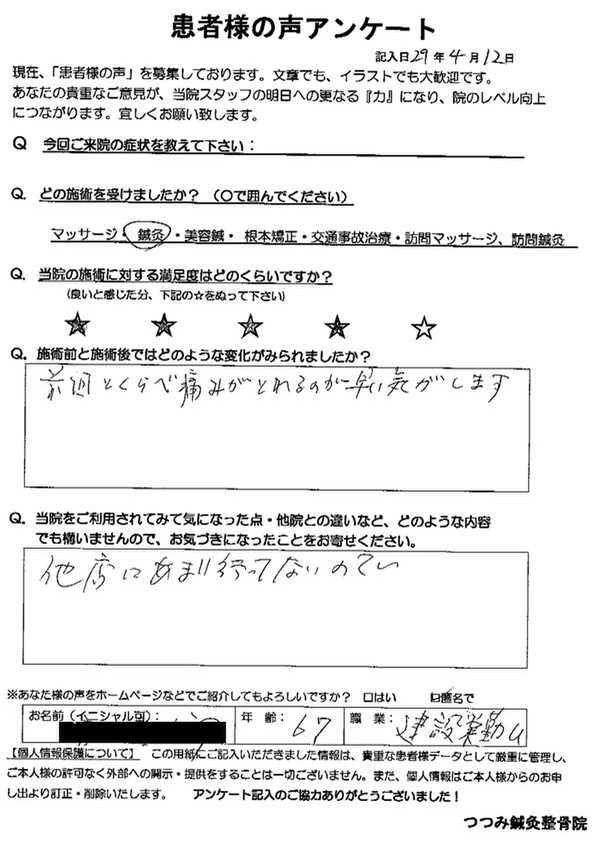 患者様の声アンケート
記入日29年4月12日
現在、「患者様の声」を募集しております。文章でも、イラストでも大歓迎です。
あなたの貴重なご意見が、当院スタッフの明日への更なる『力』になり、院のレベル向上
につながります。宜しくお願い致します。
Q 今回ご来院の症状を教えて下さい：
Q. どの施術を受けましたか？（〇で囲んでください）
マッサージ・鍼灸・美容鍼・根本矯正・交通事故治療・訪問マッサージ、訪問鍼灸
Q. 当院の施術に対する満足度はどのくらいですか？
（良いと感じた分、下記の☆をぬって下さい）
★ ★ ★ ★ ☆
Q. 施術前と施術後ではどのような変化がみられましたか？
前回とくらべ痛みがとれるのが早い気がします
Q. 当院をご利用されてみて気になった点・他院との違いなど、どのような内容
でも構いませんので、お気づきになったことをお寄せください。
他店にあまり行ってないので
※あなた様の声をホームページなどでご紹介してもよろしいですか？ □はい ☑匿名で
お名前（イニシャル可）： 年齢：67 職業：建設業勤ム
【個人情報保護について】 この用紙にご記入いただきました情報は、貴重な患者様データとして厳重に管理し、
ご本人様の許可なく外部への開示・提供をすることは一切ございません。また、個人情報はご本人様からのお申
し出より訂正・削除いたします。 アンケート記入のご協力ありがとうございました！
つつみ鍼灸整骨院